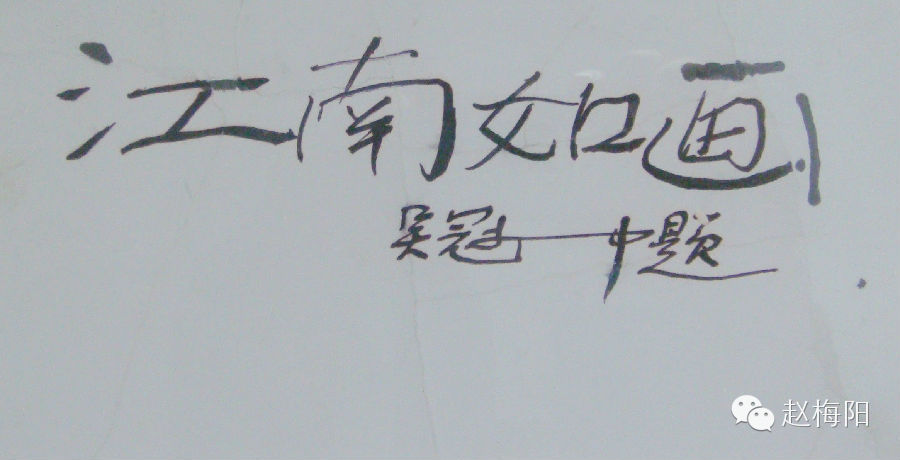 江南如画
吴冠中题
赵梅阳